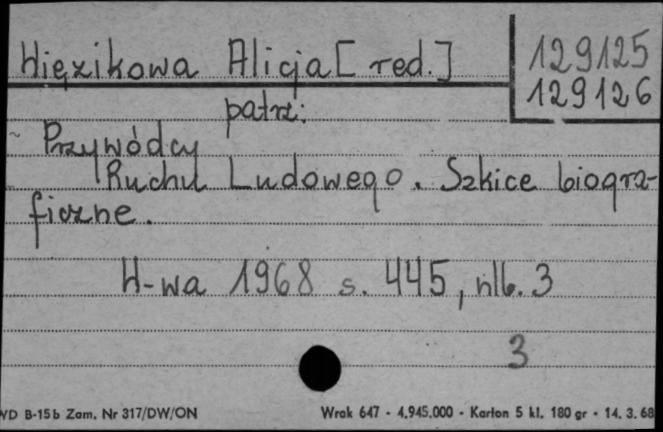 Więzikowa Alicja [red.]
129125
129126
patrz:
Przywódcy
Ruchu Ludowego. Szkice biogra-
ficzne.
W-wa 1968 s. 445, nlb. 3
3
WD B-15b Zam. Nr 317/DW/ON Wrak 647 - 4.945.000 - Karton 5 kl. 180 gr - 14. 3. 68